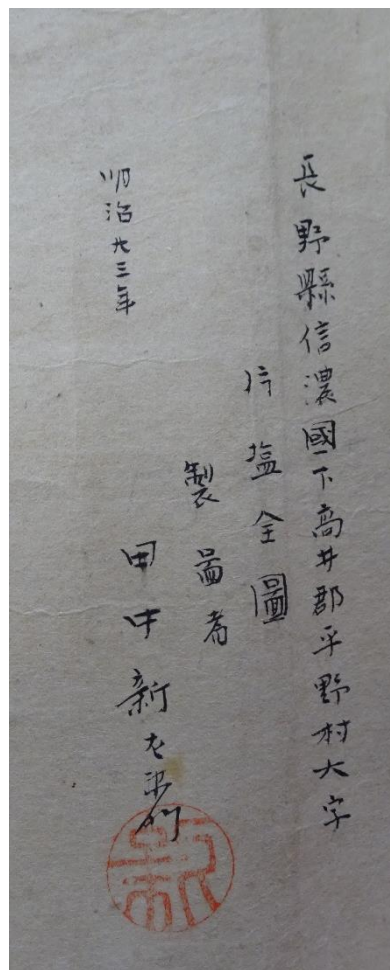 長野縣信濃國下高井郡平野村大字
片塩全圖
製啚者
田中新左衛門
明治卅三年
新